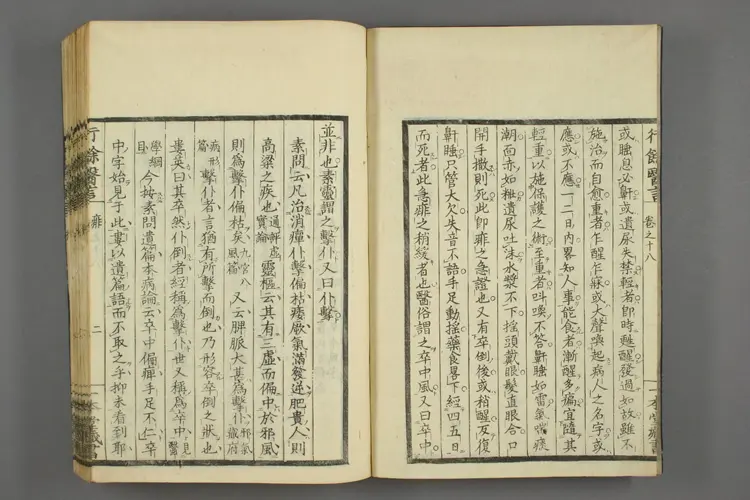 行餘醫言 卷之十八
或睡息必鼾或遺尿失禁輕者即時甦醒發過如故雖不
施治而自愈重者乍醒乍寐或大聲喚起病人之名字或
應或不應一二日內畧知人事能食者漸醒多痛宜隨其
輕重以施保護之術至重者叫喚不答鼾睡如雷氣喘痰
潮而赤如粧遺尿吐沫水漿不下搖頭戴眼髮直眼合口
開手撒則死此即痱之急證也又有卒倒後或稍醒反復
鼾睡只管大欠失音不語手足動搖藥食畧下經四五日
而死者此急痱之稍緩者也醫俗謂之卒中風又曰卒中
並非也素靈謂之擊仆又曰仆擊
素問云凡治消癉仆擊偏枯痿厥氣滿發逆肥貴人則
高粱之疾也通評虛實論靈樞云其有三虛而偏中於邪風
則為擊仆偏枯矣九宮八風篇又云脾脈大甚為擊仆邪氣藏府
病形篇擊仆者言猶有所擊而倒也乃形容卒倒之狀也
婁英曰其卒然仆倒者經稱為擊仆世又稱為卒中見醫
學綱目今按素問遺篇本病論云卒中偏痺手足不仁卒
中字始見于此婁以遺篇語而不取之乎抑未看到耶
行餘醫言 痱 二